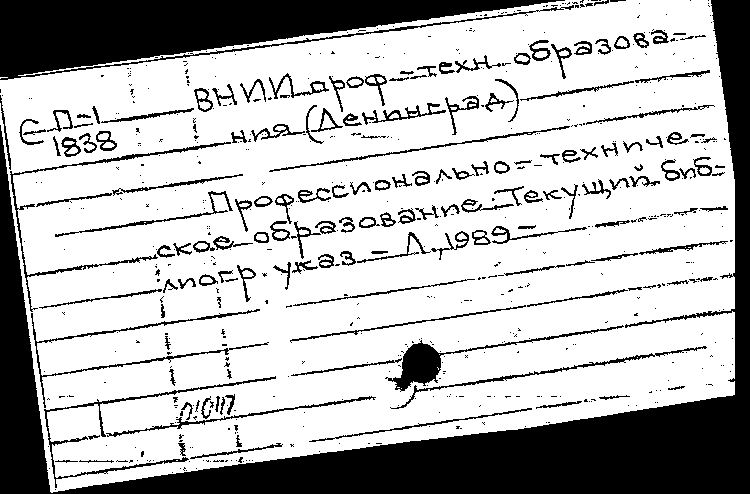 ВНИИ проф-техн. образова-
Є П-1
1838
ния (Ленинград)
Профессионально-техниче-
ское образование. Текущий биб-
лиогр. указ - Л., 1989-